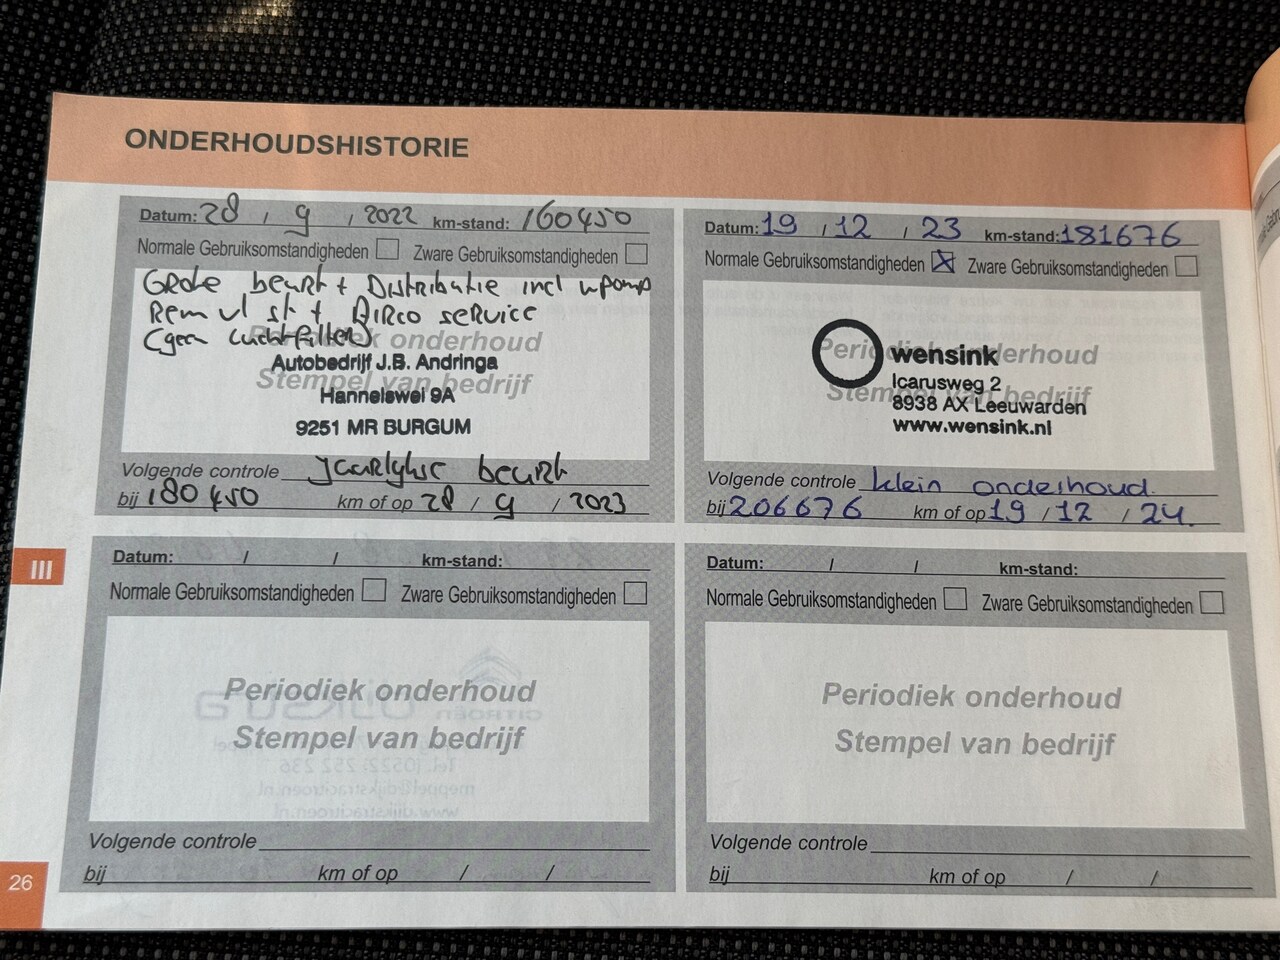 ONDERHOUDSHISTORIE
Datum: 28 / 9 / 2022 km-stand: 160450
Normale Gebruiksomstandigheden Zware Gebruiksomstandigheden
Grote beurt + Distributie incl wpomp
Rem vl st + Airco service
(geen luchtfilter)
Periodiek onderhoud
Autobedrijf J.B. Andringa
Stempel van bedrijf
Hannelswei 9A
9251 MR BURGUM
Volgende controle jaarlykse beurt
bij 180450 km of op 28 / 9 / 2023
Datum: 19 / 12 / 23 km-stand: 181676
Normale Gebruiksomstandigheden X Zware Gebruiksomstandigheden
Periodiek onderhoud
wensink
Stempel van bedrijf
Icarusweg 2
8938 AX Leeuwarden
www.wensink.nl
Volgende controle klein onderhoud.
bij 206676 km of op 19 / 12 / 24.
III
Datum: / / km-stand:
Normale Gebruiksomstandigheden Zware Gebruiksomstandigheden
Periodiek onderhoud
Stempel van bedrijf
Volgende controle
bij km of op / /
Datum: / / km-stand:
Normale Gebruiksomstandigheden Zware Gebruiksomstandigheden
Periodiek onderhoud
Stempel van bedrijf
Volgende controle
bij km of op / /
26